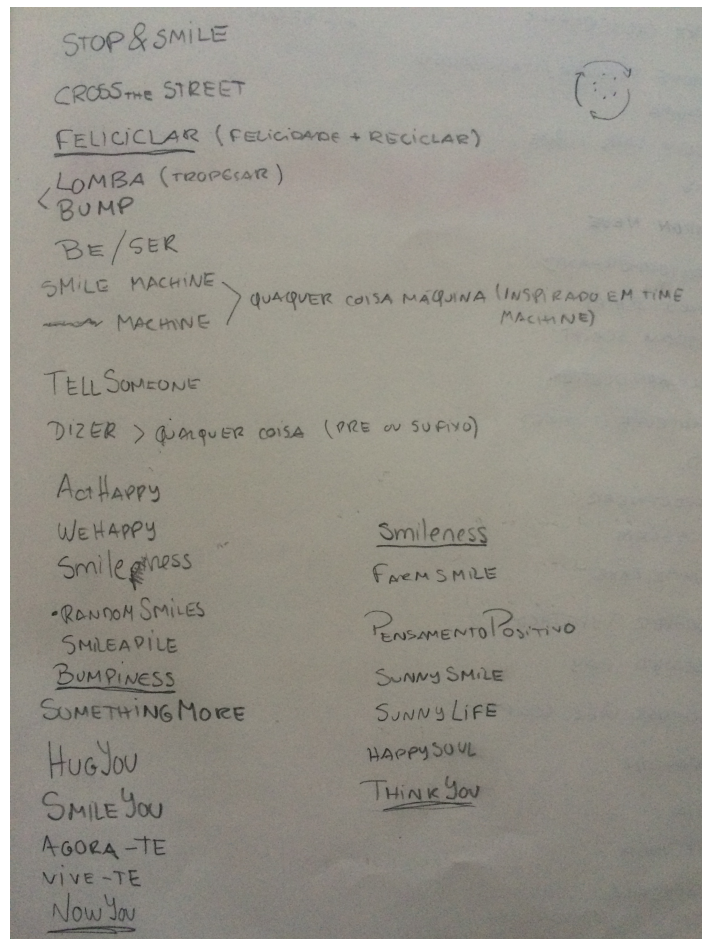 STOP & SMILE
CROSS THE STREET
FELICICLAR (FELICIDADE + RECICLAR)
LOMBA (TROPEÇAR)
BUMP
BE/SER
SMILE MACHINE
MACHINE
QUAQUER COISA MÁQUINA (INSPIRADO EM TIME
MACHINE)
TELLSOMEONE
DIZER > QUALQUER COISA (PRE OU SUFIXO)
ACTHAPPY
WEHAPPY
Smileness
• RANDOMSMILES
SMILEAPILE
BUMPINESS
SOMETHINGMORE
HUGYOU
SMILEYOU
AGORA-TE
VIVE-TE
NOWYOU
Smileness
FARMSMILE
PENSAMENTOPOSITIVO
SUNNYSMILE
SUNNYLIFE
HAPPYSOUL
THINKYOU